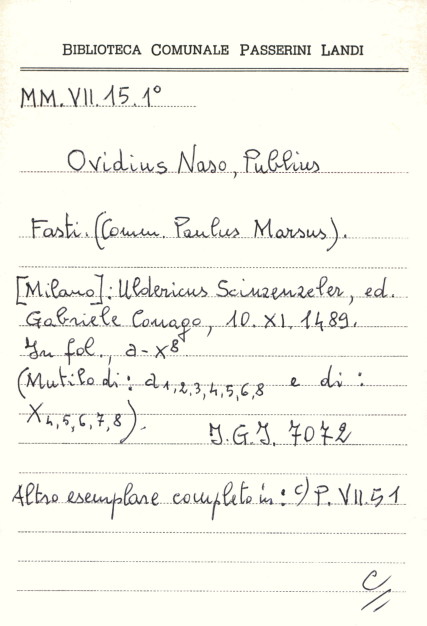 BIBLIOTECA COMUNALE PASSERINI LANDI
MM.VII.15.1°
Ovidius Naso, Publius
Fasti. (Comm. Paulus Marsus).
[Milano]: Uldericus Scinzenzeler, ed.
Gabriele Conago, 10. XI. 1489.
In fol., a-x8
(Mutilo di: a1,2,3,4,5,6,8 e di:
x4,5,6,7,8).
I.G.I. 7072
Altro esemplare completo in: c) P. VII.51
C